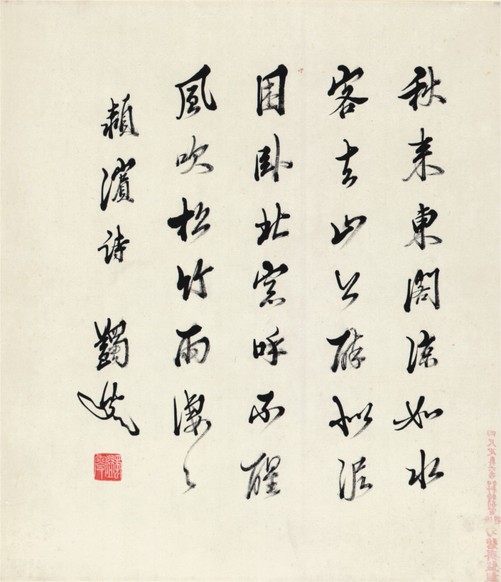 秋来東閣涼如水
客去山公醉似泥
困臥北窓呼不醒
風吹松竹雨凄々
潁濱詩 蠲叟